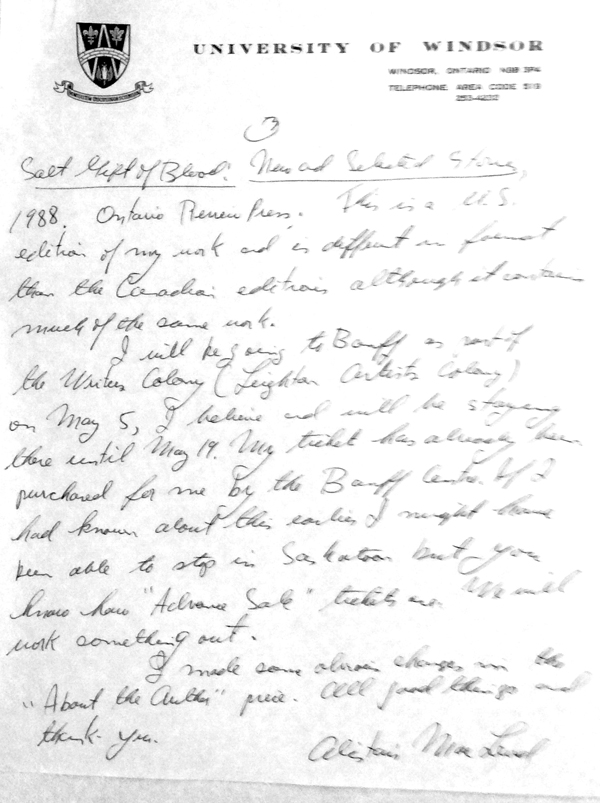 UNIVERSITY OF WINDSOR
WINDSOR, ONTARIO N9B 3P4
TELEPHONE: AREA CODE 519
253-4232
3
Salt Gift of Blood: New and Selected Stories,
1988. Ontario Review Press. This is a U.S.
edition of my work and is different in format
than the Canadian editions although it contains
much of the same work.
I will be going to Banff as part of
the Writers Colony (Leighton Artists Colony)
on May 5, I believe and will be staying
there until May 19. My ticket has already been
purchased for me by the Banff Centre. If I
had known about this earlier I might have
been able to stop in Saskatoon but you
know how "Advance Sale" tickets are. We will
work something out.
I made some obvious changes in the
"About the Author" piece. All good things and
thank-you.
Alistair MacLeod